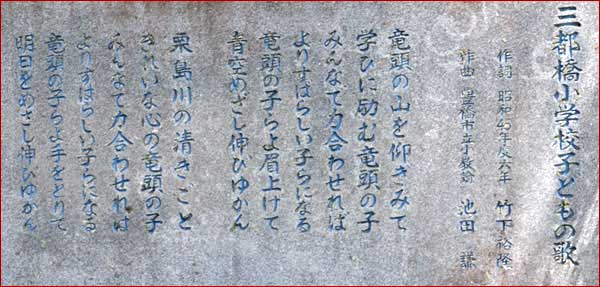 三都橋小学校子どもの歌
作詞 昭和 年 竹下裕隆
作曲 豊橋市 教諭 池田 謙
竜頭の山を仰ぎみて
学びに励む竜頭の子
みんなで力合わせれば
よりすばらしい子らになる
竜頭の子らよ眉上げて
青空めざし伸びゆかん
栗島川の清きごと
きれいな心の竜頭の子
みんなで力合わせれば
よりすばらしい子らになる
竜頭の子らよ手をとりて
明日をめざし伸びゆかん